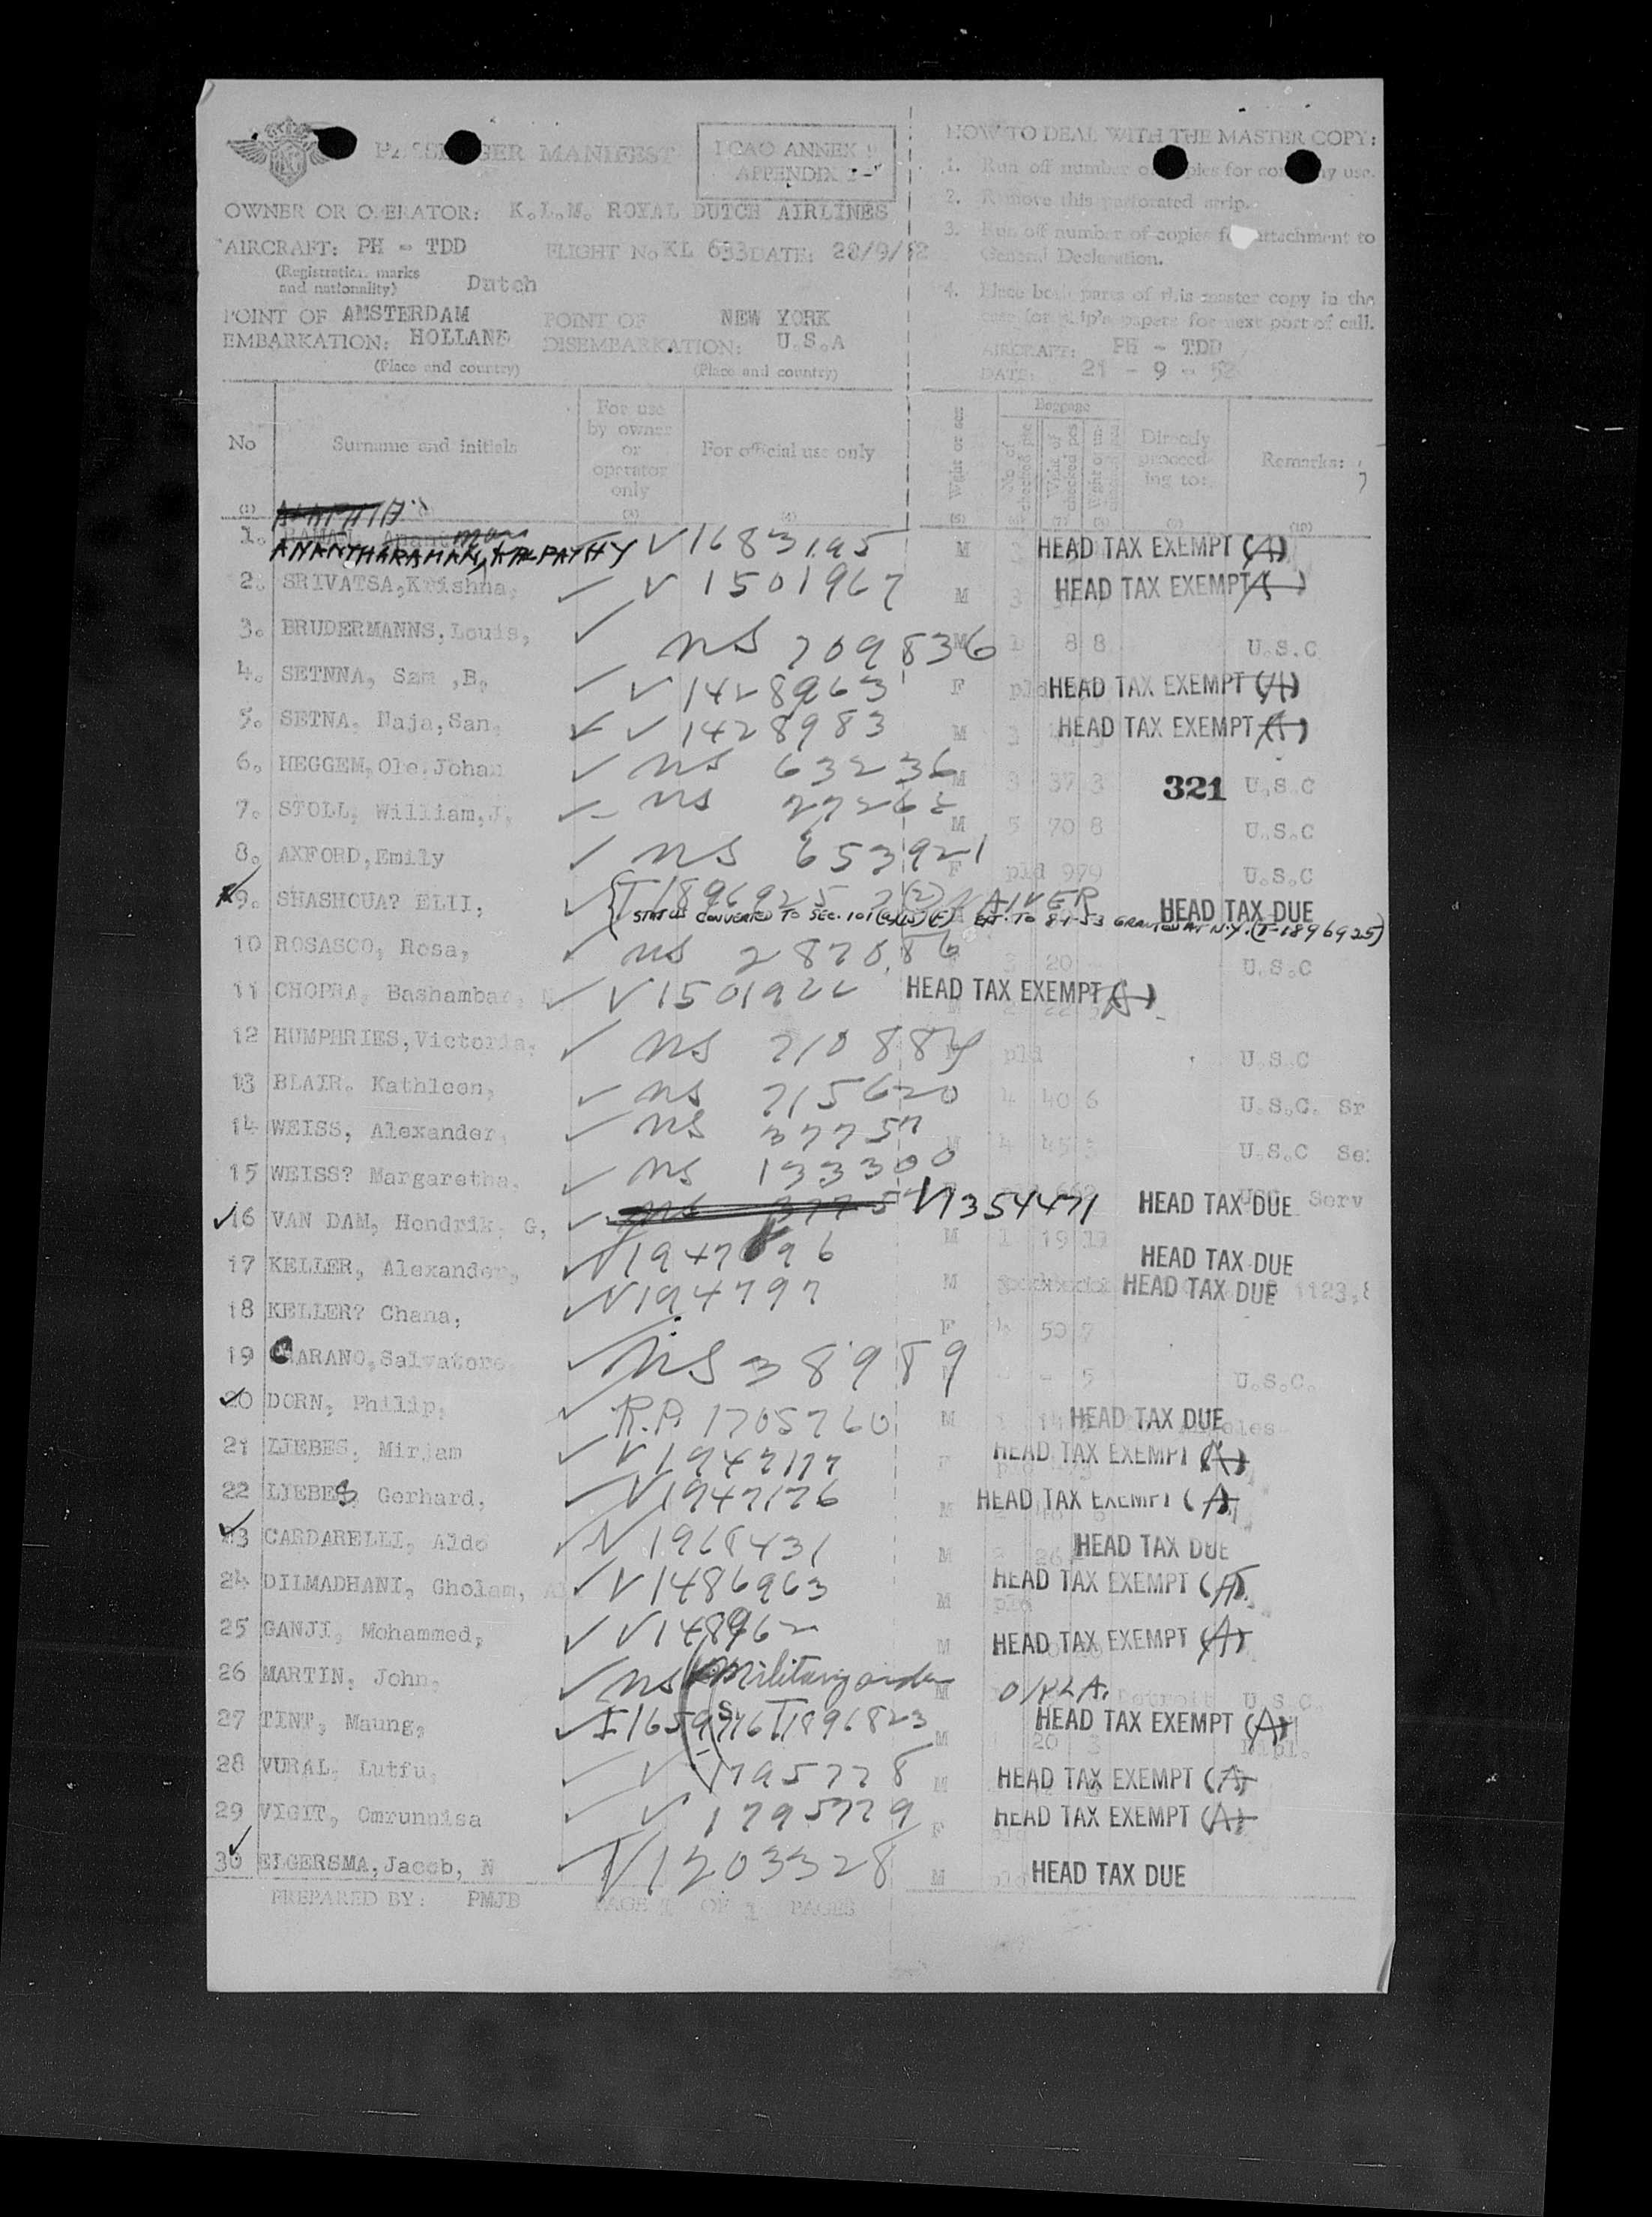 PASSENGER MANIFEST
ICAO ANNEX 9
APPENDIX
OWNER OR OPERATOR: K.L.M. ROYAL DUTCH AIRLINES
AIRCRAFT: PH - TDD FLIGHT No KL 633 DATE: 20/9/52
(Registration marks and nationality) Dutch
POINT OF EMBARKATION: AMSTERDAM HOLLAND POINT OF DISEMBARKATION: NEW YORK U.S.A
(Place and country) (Place and country)
HOW TO DEAL WITH THE MASTER COPY:
1. Run off number of copies for company use.
2. Remove this perforated strip.
3. Run off number of copies for attachment to
General Declaration.
4. Place both parts of this master copy in the
case for ship's papers for next port of call.
AIRCRAFT: PH - TDD
DATE: 21 - 9 - 52
No Surname and initials For use by owner or operator only For official use only Baggage Directly proceeding to: Remarks:
1. ANANTHARAMAN, KALPATHY V1683195 M HEAD TAX EXEMPT (A)
2. SRIVATSA, Krishna, V 1501967 M 3 HEAD TAX EXEMPT
3. BRUDERMANNS, Louis, NS 709836 M 1 8 8 U.S.C
4. SETNNA, Sam ,B. V 1428963 F pld HEAD TAX EXEMPT (A)
5. SETNA, Naja, San, V 1428983 M 3 HEAD TAX EXEMPT (A)
6. HEGGEM, Ole. Johan NS 63236 M 3 37 3 321 U.S.C
7. STOLL, William, J, NS 27262 M 5 70 8 U.S.C
8. AXFORD, Emily NS 653921 F pld 979 U.S.C
9. SHASHOUA? ELII, T1896925 7(2) WAIVER HEAD TAX DUE
STATUS CONVERTED TO SEC. 101(a)(15)(F) EXT. TO 8-1-53 GRANTED AT N.Y. (T-1896925)
10 ROSASCO, Rosa, NS 287086 20 U.S.C
11 CHOPRA, Bashambar, V1501922 HEAD TAX EXEMPT (A)
12 HUMPHRIES, Victoria, NS 710884 pld U.S.C
13 BLAIR. Kathleen, NS 715620 4 40 6 U.S.C. Sr
14 WEISS, Alexander, NS 37757 M 4 45 3 U.S.C Se
15 WEISS? Margaretha. NS 133300 Serv
16 VAN DAM, Hendrik, G, V1354471 M 1 19 HEAD TAX DUE
17 KELLER, Alexander, M HEAD TAX DUE
18 KELLER? Chana, V194797 F 50 7 HEAD TAX DUE
19 MARANO, Salvatore NS 38989 5 U.S.C.
20 DORN, Philip, R.P. 1705760 M HEAD TAX DUE
21 LIEBES, Mirjam V 1947177 F HEAD TAX EXEMPT (A)
22 LIEBES, Gerhard, V1947176 M HEAD TAX EXEMPT (A)
23 CARDARELLI, Aldo V 1968431 M 2 26 HEAD TAX DUE
24 DILMADHANI, Gholam, V1486963 M pld HEAD TAX EXEMPT (A)
25 GANJI, Mohammed, V148962 M HEAD TAX EXEMPT (A)
26 MARTIN, John, NS Military order M Detroit U.S.C.
27 TINT, Maung, T1896823 M 20 3 HEAD TAX EXEMPT (A) Dipl.
28 VURAL, Lutfu, V 1795778 M HEAD TAX EXEMPT (A)
29 VIGIT, Omrunnisa V 1795779 F HEAD TAX EXEMPT (A)
30 ELGERSMA, Jacob, N V1203328 M pld HEAD TAX DUE
PREPARED BY: PMJB PAGE OF 1 PAGES